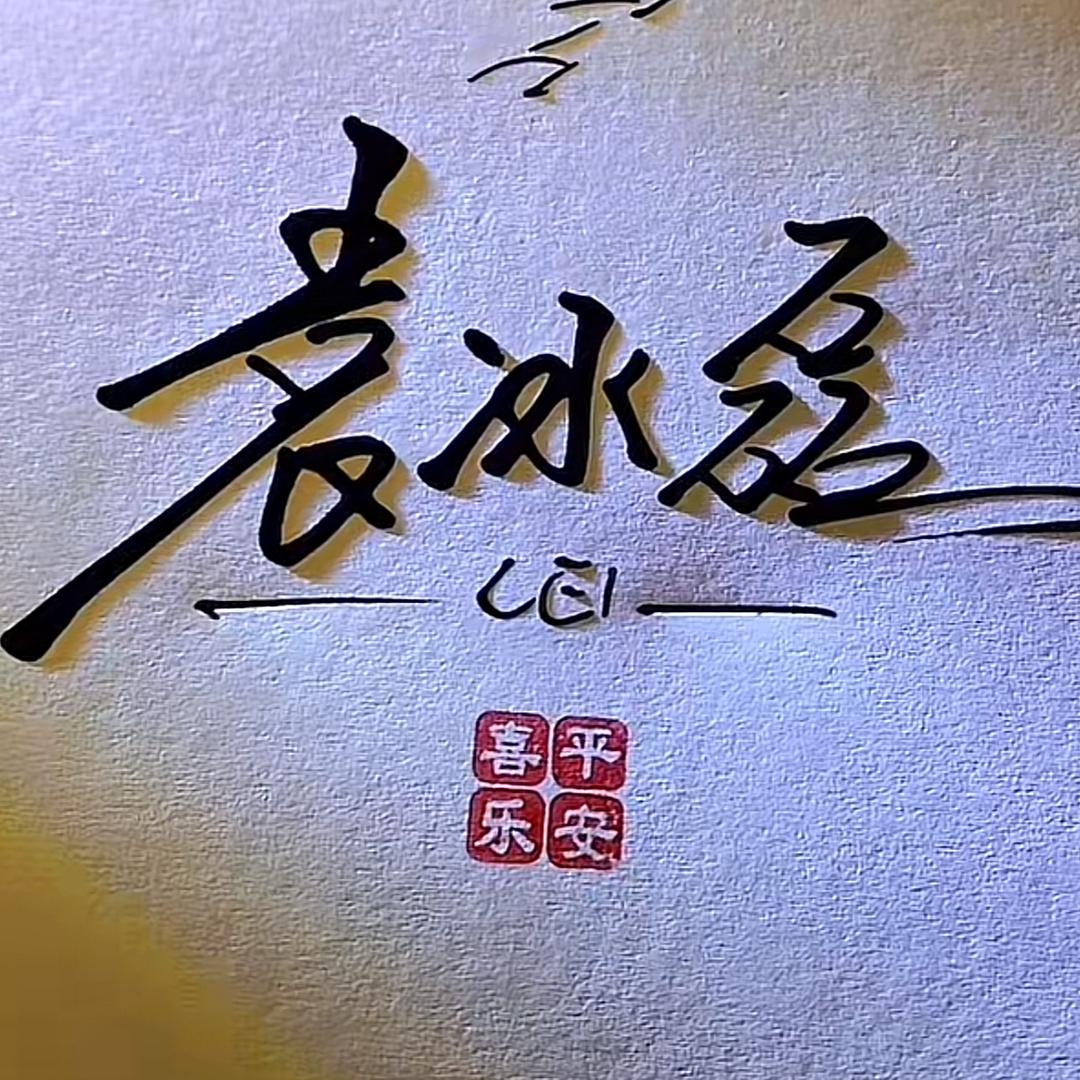 袁冰磊
LEI
喜平
乐安